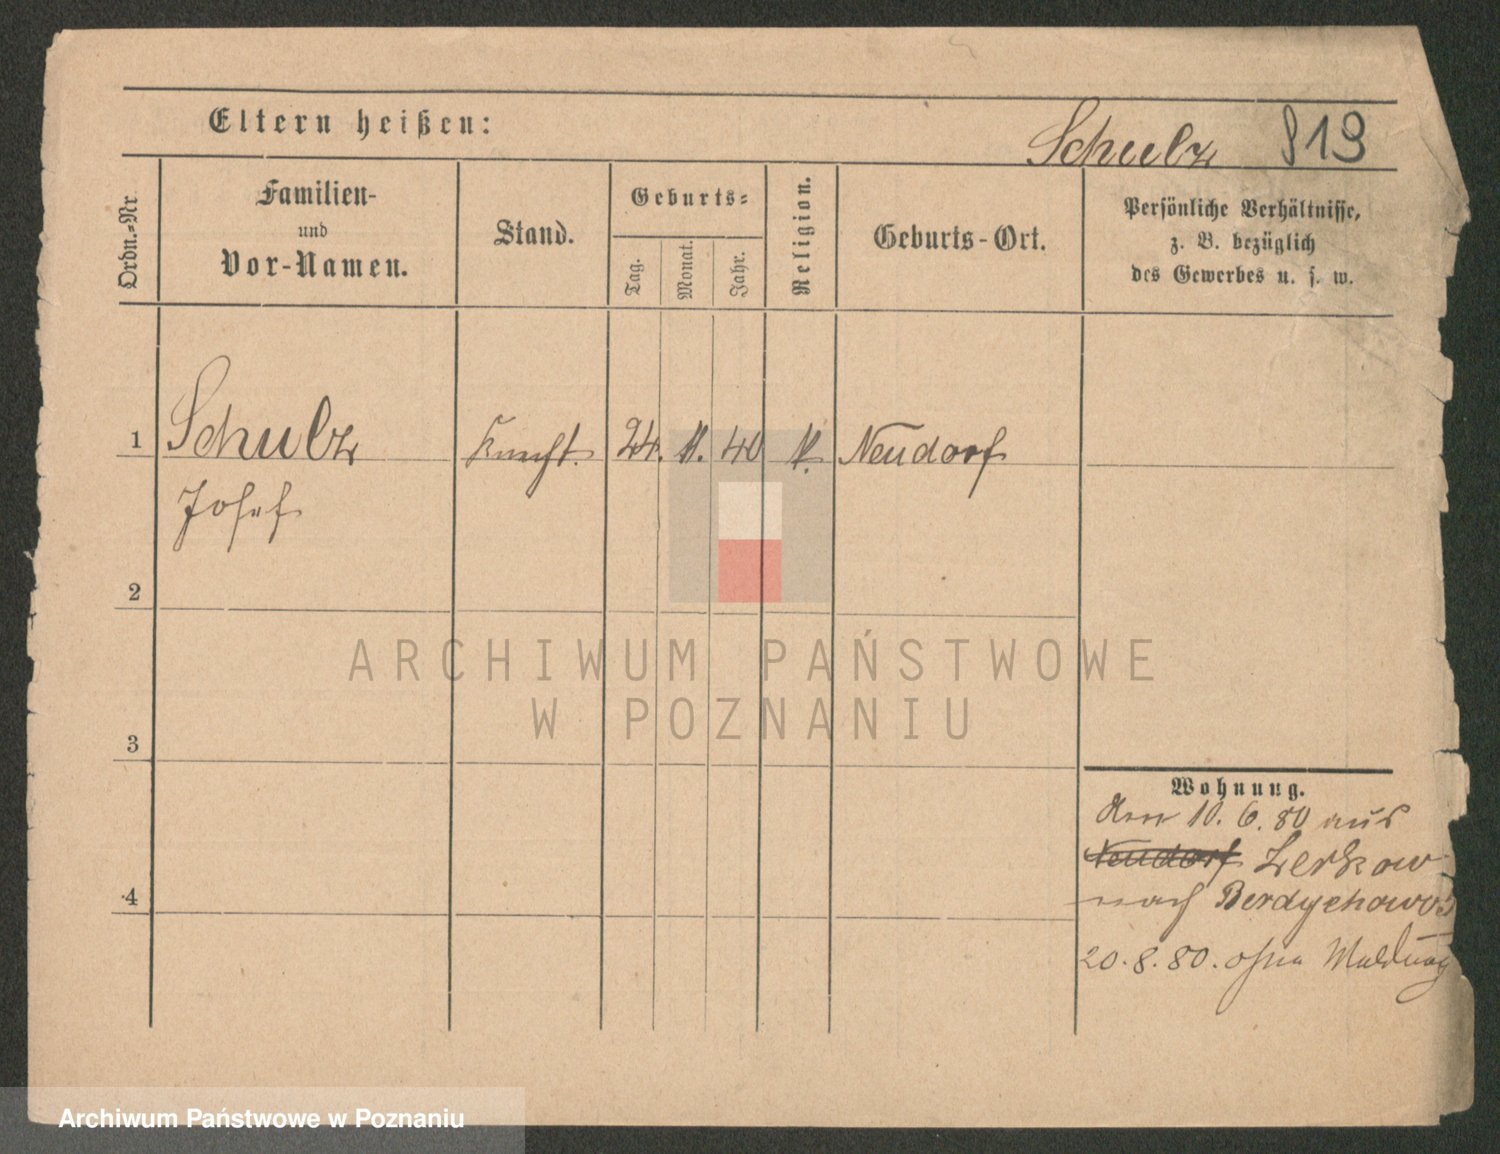 Eltern heißen:
Schulz 819
Ordn.-Nr.
Familien-
und
Vor-Namen.
Stand.
Geburts-
Tag.
Monat.
Jahr.
Religion.
Geburts-Ort.
Persönliche Verhältnisse,
z. B. bezüglich
des Gewerbes u. s. w.
1 Schulz Knecht. 24. 11. 40 k. Neudorf
Josef
2
3
4
Wohnung.
den 10. 6. 80 aus
Neudorf Zerkow
nach Berdychowo
20.8.80. ohne Meldung
ARCHIWUM PAŃSTWOWE
W POZNANIU
Archiwum Państwowe w Poznaniu